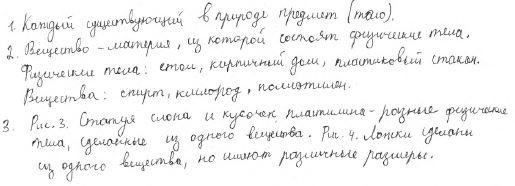 1. Каждый существующий в природе предмет (тело).
2. Вещество - материя, из которой состоят физические тела.
Физические тела: стол, кирпичный дом, пластиковый стакан.
Вещества: спирт, кислород, полиэтилен.
3. Рис. 3. Статуя слона и кусочек пластилина - разные физические
тела, сделанные из одного вещества. Рис. 4. Ложки сделаны
из одного вещества, но имеют различные размеры.